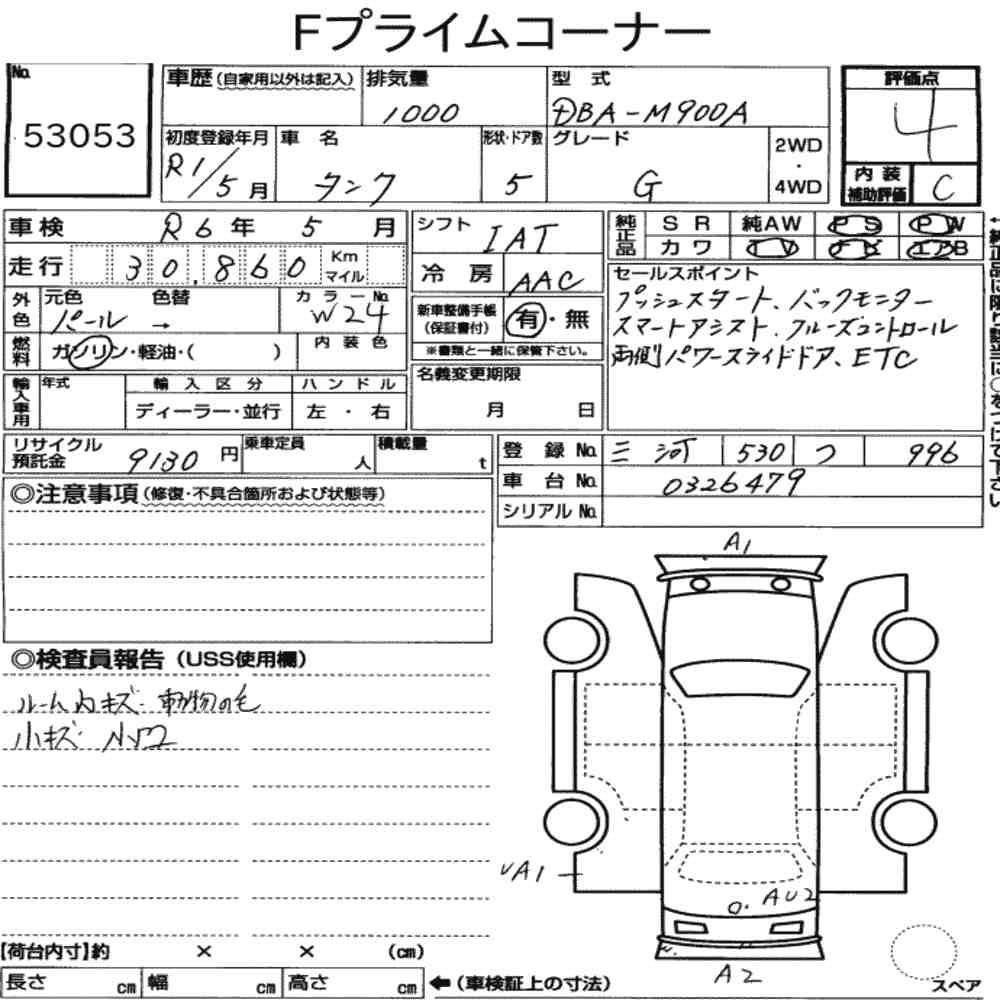 Fプライムコーナー
No.
53053
車歴(自家用以外は記入)
排気量
1000
型 式
DBA-M900A
評価点
4
初度登録年月
R1/5月
車 名
タンク
形状・ドア数
5
グレード
G
2WD
・
4WD
内 装
補助評価
C
車検 R6年 5月
走行 30,860 Km
マイル
シフト
IAT
冷 房
AAC
純正品
S R 純AW PS PW
カワ TV ナビ エアB
←純正品に限り該当に○をつけて下さい
外色
元色 色替
パール →
カラーNo.
W24
燃料
ガソリン・軽油・( )
内 装 色
新車整備手帳
(保証書付)
有・無
※書類と一緒に保管下さい。
セールスポイント
プッシュスタート、バックモニター
スマートアシスト、クルーズコントロール
両側パワースライドドア、ETC
輸入車用
年式
輸 入 区 分
ディーラー・並行
ハ ン ド ル
左 ・ 右
名義変更期限
月 日
リサイクル
預託金
9130円
乗車定員
人
積載量
t
登 録 No. 三河 530 つ 996
車 台 No. 0326479
シリアル No.
◎注意事項(修復・不具合箇所および状態等)
◎検査員報告(USS使用欄)
ルーム内キズ・動物の毛
小キズ
A1
A1
AU2
A2
【荷台内寸】約 × × (cm)
長さ cm 幅 cm 高さ cm ←(車検証上の寸法)
スペア